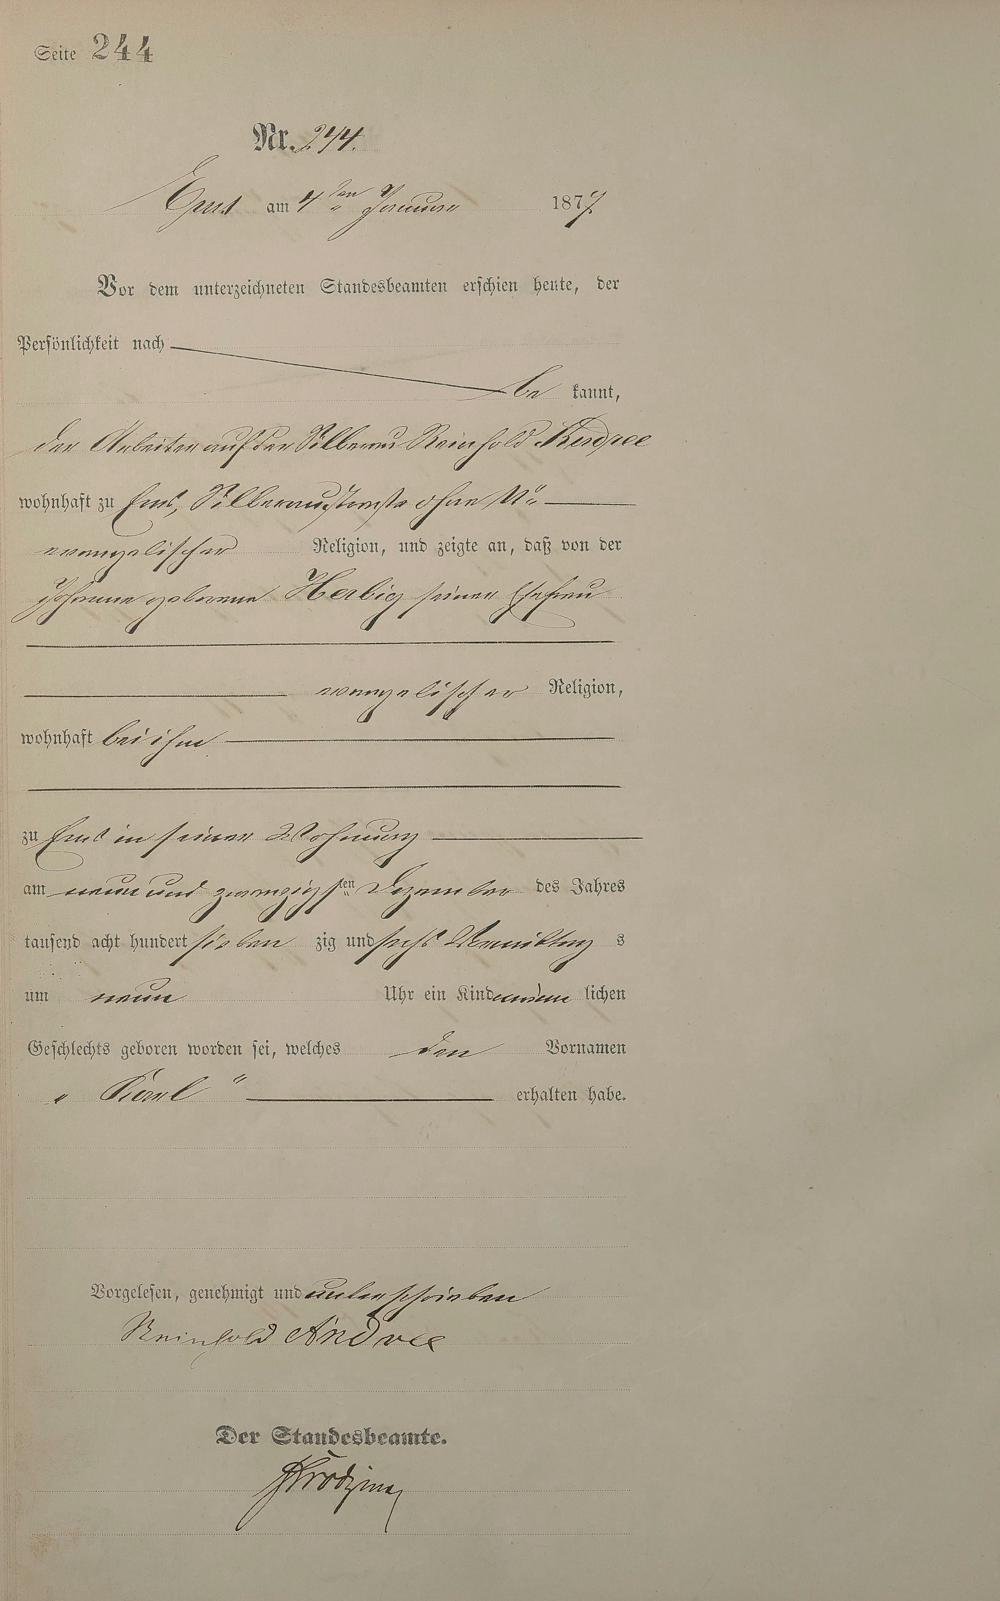 Seite 244
Nr. 244.
Ems am 4ten Januar 1877
Vor dem unterzeichneten Standesbeamten erschien heute, der
Persönlichkeit nach
be kannt,
der Arbeiter auf der Silberau Reinhold Andree
wohnhaft zu Ems, Silberau ohne No
evangelischer Religion, und zeigte an, daß von der
Johanne geborene Herbig seiner Ehefrau
evangelischer Religion,
wohnhaft bei ihm
zu Ems in seiner Wohnung
am neun und zwanzigsten Dezember des Jahres
tausend acht hundert sieben zig und sechs Vormittag s
um neun Uhr ein Kind männ lichen
Geschlechts geboren worden sei, welches den Vornamen
„ Karl " erhalten habe.
Vorgelesen, genehmigt und unterschrieben
Reinhold Andree
Der Standesbeamte.